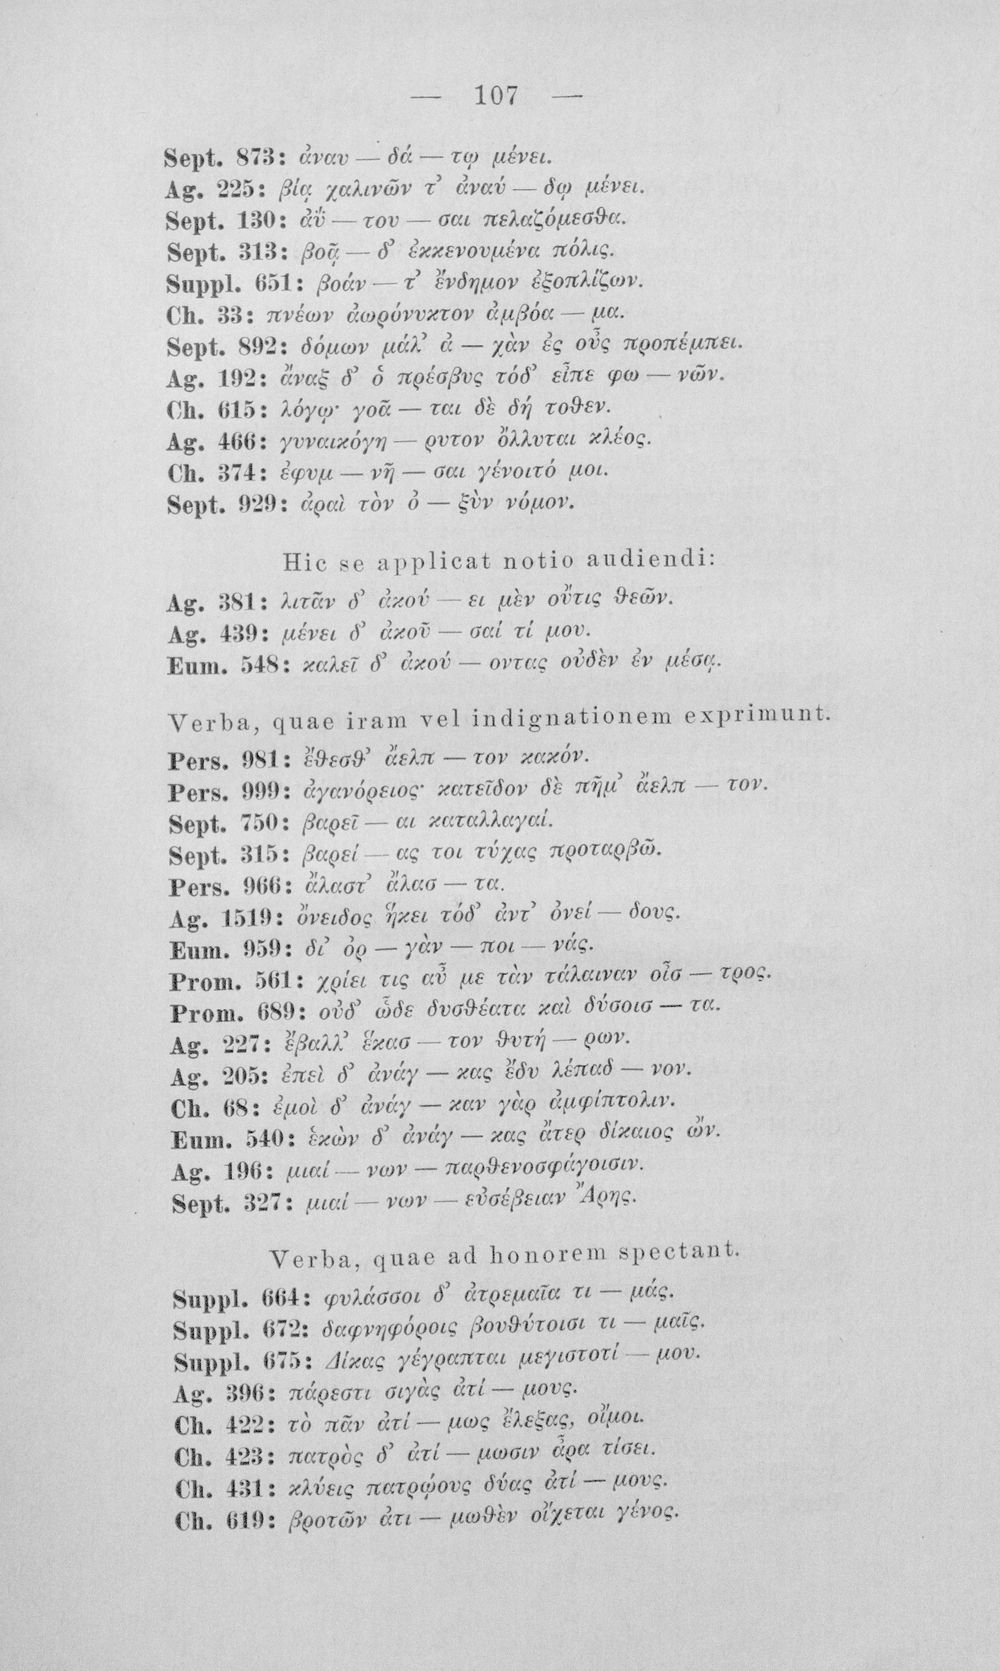 — 107 —
Sept. 873: ἀναυ — δά — τῳ μένει.
Ag. 225: βίᾳ χαλινῶν τ’ ἀναύ — δῳ μένει.
Sept. 130: ἀΰ — του — σαι πελαζόμεσθα.
Sept. 313: βοᾷ — δ’ ἐκκενουμένα πόλις.
Suppl. 651: βοάν — τ’ ἔνδημον ἐξοπλίζων.
Ch. 33: πνέων ἀωρόνυκτον ἀμβόα — μα.
Sept. 892: δόμων μάλ’ ἀ — χὰν ἐς οὓς προπέμπει.
Ag. 192: ἄναξ δ’ ὁ πρέσβυς τόδ’ εἶπε φω — νῶν.
Ch. 615: λόγῳ· γοᾶ — ται δὲ δή τοθεν.
Ag. 466: γυναικόγη — ρυτον ὄλλυται κλέος.
Ch. 374: ἐφυμ — νῆ — σαι γένοιτό μοι.
Sept. 929: ἀραὶ τὸν ὀ — ξὺν νόμον.
Hic se applicat notio audiendi:
Ag. 381: λιτᾶν δ’ ἀκού — ει μὲν οὔτις θεῶν.
Ag. 439: μένει δ’ ἀκοῦ — σαί τί μου.
Eum. 548: καλεῖ δ’ ἀκού — οντας οὐδὲν ἐν μέσᾳ.
Verba, quae iram vel indignationem exprimunt.
Pers. 981: ἔθεσθ’ ἄελπ — τον κακόν.
Pers. 999: ἀγανόρειος· κατεῖδον δὲ πῆμ’ ἄελπ — τον.
Sept. 750: βαρεῖ — αι καταλλαγαί.
Sept. 315: βαρεί — ας τοι τύχας προταρβῶ.
Pers. 966: ἄλαστ’ ἄλασ — τα.
Ag. 1519: ὄνειδος ἥκει τόδ’ ἀντ’ ὀνεί — δους.
Eum. 959: δι’ ὀρ — γὰν — ποι — νάς.
Prom. 561: χρίει τις αὖ με τὰν τάλαιναν οἶσ — τρος.
Prom. 689: οὐδ’ ὧδε δυσθέατα καὶ δύσοισ — τα.
Ag. 227: ἔβαλλ’ ἕκασ — τον θυτή — ρων.
Ag. 205: ἐπεὶ δ’ ἀνάγ — κας ἔδυ λέπαδ — νον.
Ch. 68: ἐμοὶ δ’ ἀνάγ — καν γὰρ ἀμφίπτολιν.
Eum. 540: ἑκὼν δ’ ἀνάγ — κας ἄτερ δίκαιος ὤν.
Ag. 196: μιαί — νων — παρθενοσφάγοισιν.
Sept. 327: μιαί — νων — εὐσέβειαν Ἄρης.
Verba, quae ad honorem spectant.
Suppl. 664: φυλάσσοι δ’ ἀτρεμαῖα τι — μάς.
Suppl. 672: δαφνηφόροις βουθύτοισι τι — μαῖς.
Suppl. 675: Δίκας γέγραπται μεγιστοτί — μου.
Ag. 396: πάρεστι σιγὰς ἀτί — μους.
Ch. 422: τὸ πᾶν ἀτί — μως ἔλεξας, οἴμοι.
Ch. 423: πατρὸς δ’ ἀτί — μωσιν ἆρα τίσει.
Ch. 431: κλύεις πατρῴους δύας ἀτί — μους.
Ch. 619: βροτῶν ἀτι — μωθὲν οἴχεται γένος.